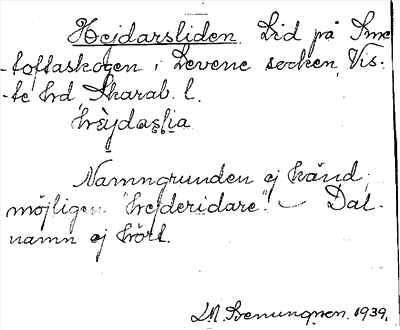 Hejdarsliden. Lid på Sme-
-toftaskogen i Levene socken, Vis-
-te hd, Skarab. l.
hèi̯daṣḷia
Namngrunden ej känd,
möjligen "hejderidare". — Dal-
namn ej hört.
1939.